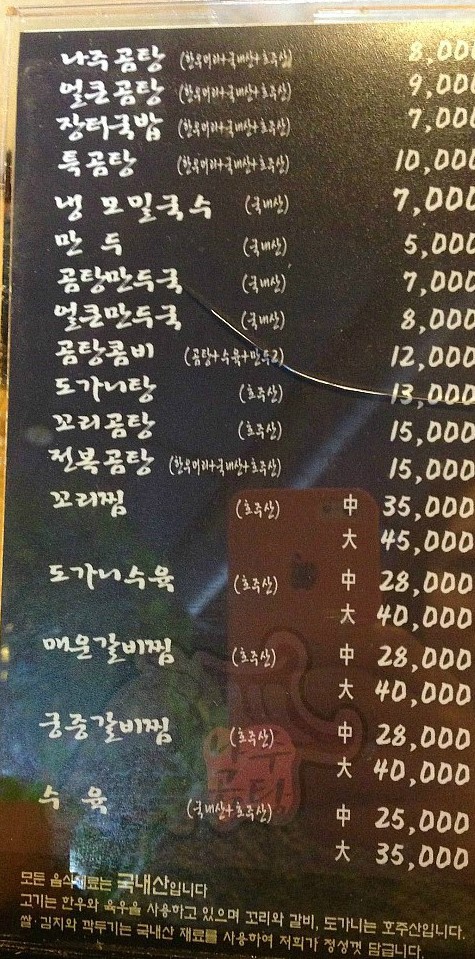 나주곰탕 (한우머리+국내산+호주산) 8,000
얼큰곰탕 (한우머리+국내산+호주산) 9,000
장터국밥 (한우머리+국내산+호주산) 7,000
특곰탕 (한우머리+국내산+호주산) 10,000
냉 모밀국수 (국내산) 7,000
만 두 (국내산) 5,000
곰탕만두국 (국내산) 7,000
얼큰만두국 (국내산) 8,000
곰탕콤비 (곰탕+수육+만두2) 12,000
도가니탕 (호주산) 13,000
꼬리곰탕 (호주산) 15,000
전복곰탕 (한우머리+국내산+호주산) 15,000
꼬리찜 (호주산) 中 35,000
大 45,000
도가니수육 (호주산) 中 28,000
大 40,000
매운갈비찜 (호주산) 中 28,000
大 40,000
궁중갈비찜 (호주산) 中 28,000
大 40,000
수 육 (국내산+호주산) 中 25,000
大 35,000
나주
곰탕
모든 음식재료는 국내산입니다
고기는 한우와 육우을 사용하고 있으며 꼬리와 갈비, 도가니는 호주산입니다.
쌀·김치와 깍두기는 국내산 재료를 사용하여 저희가 정성껏 담급니다.